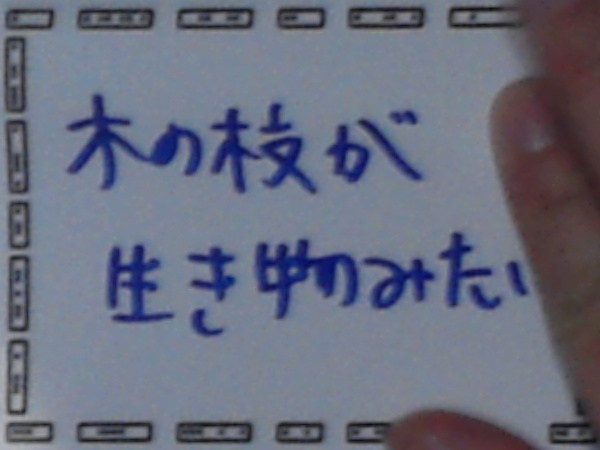 木の枝が
生き物みたい